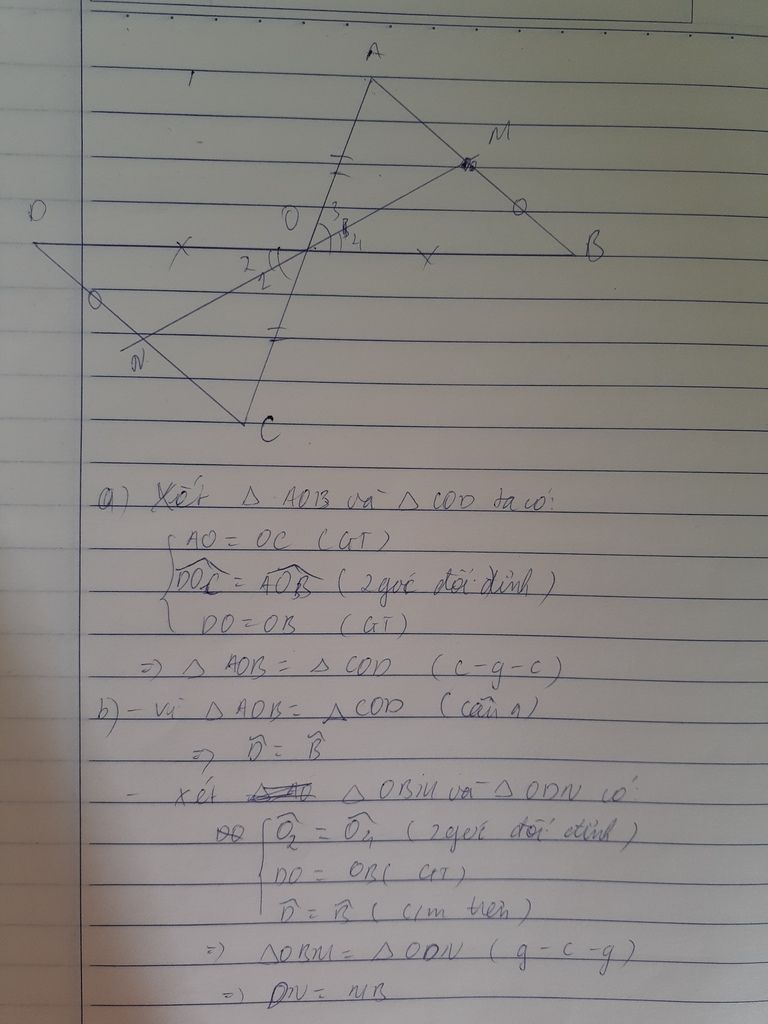 A
M
D
O
3
4
B
2
1
N
C
a) Xét △ AOB và △ COD ta có:
AO = OC (GT)
DOC = AOB (2 góc đối đỉnh)
DO = OB (GT)
=> △ AOB = △ COD (c-g-c)
b) - Vì △ AOB = △ COD (câu a)
=> D̂ = B̂
- Xét △ OBM và △ ODN có:
Ô2 = Ô4 (2 góc đối đỉnh)
DO = OB (GT)
D̂ = B̂ (c/m trên)
=> △OBM = △ODN (g-c-g)
=> DN = MB